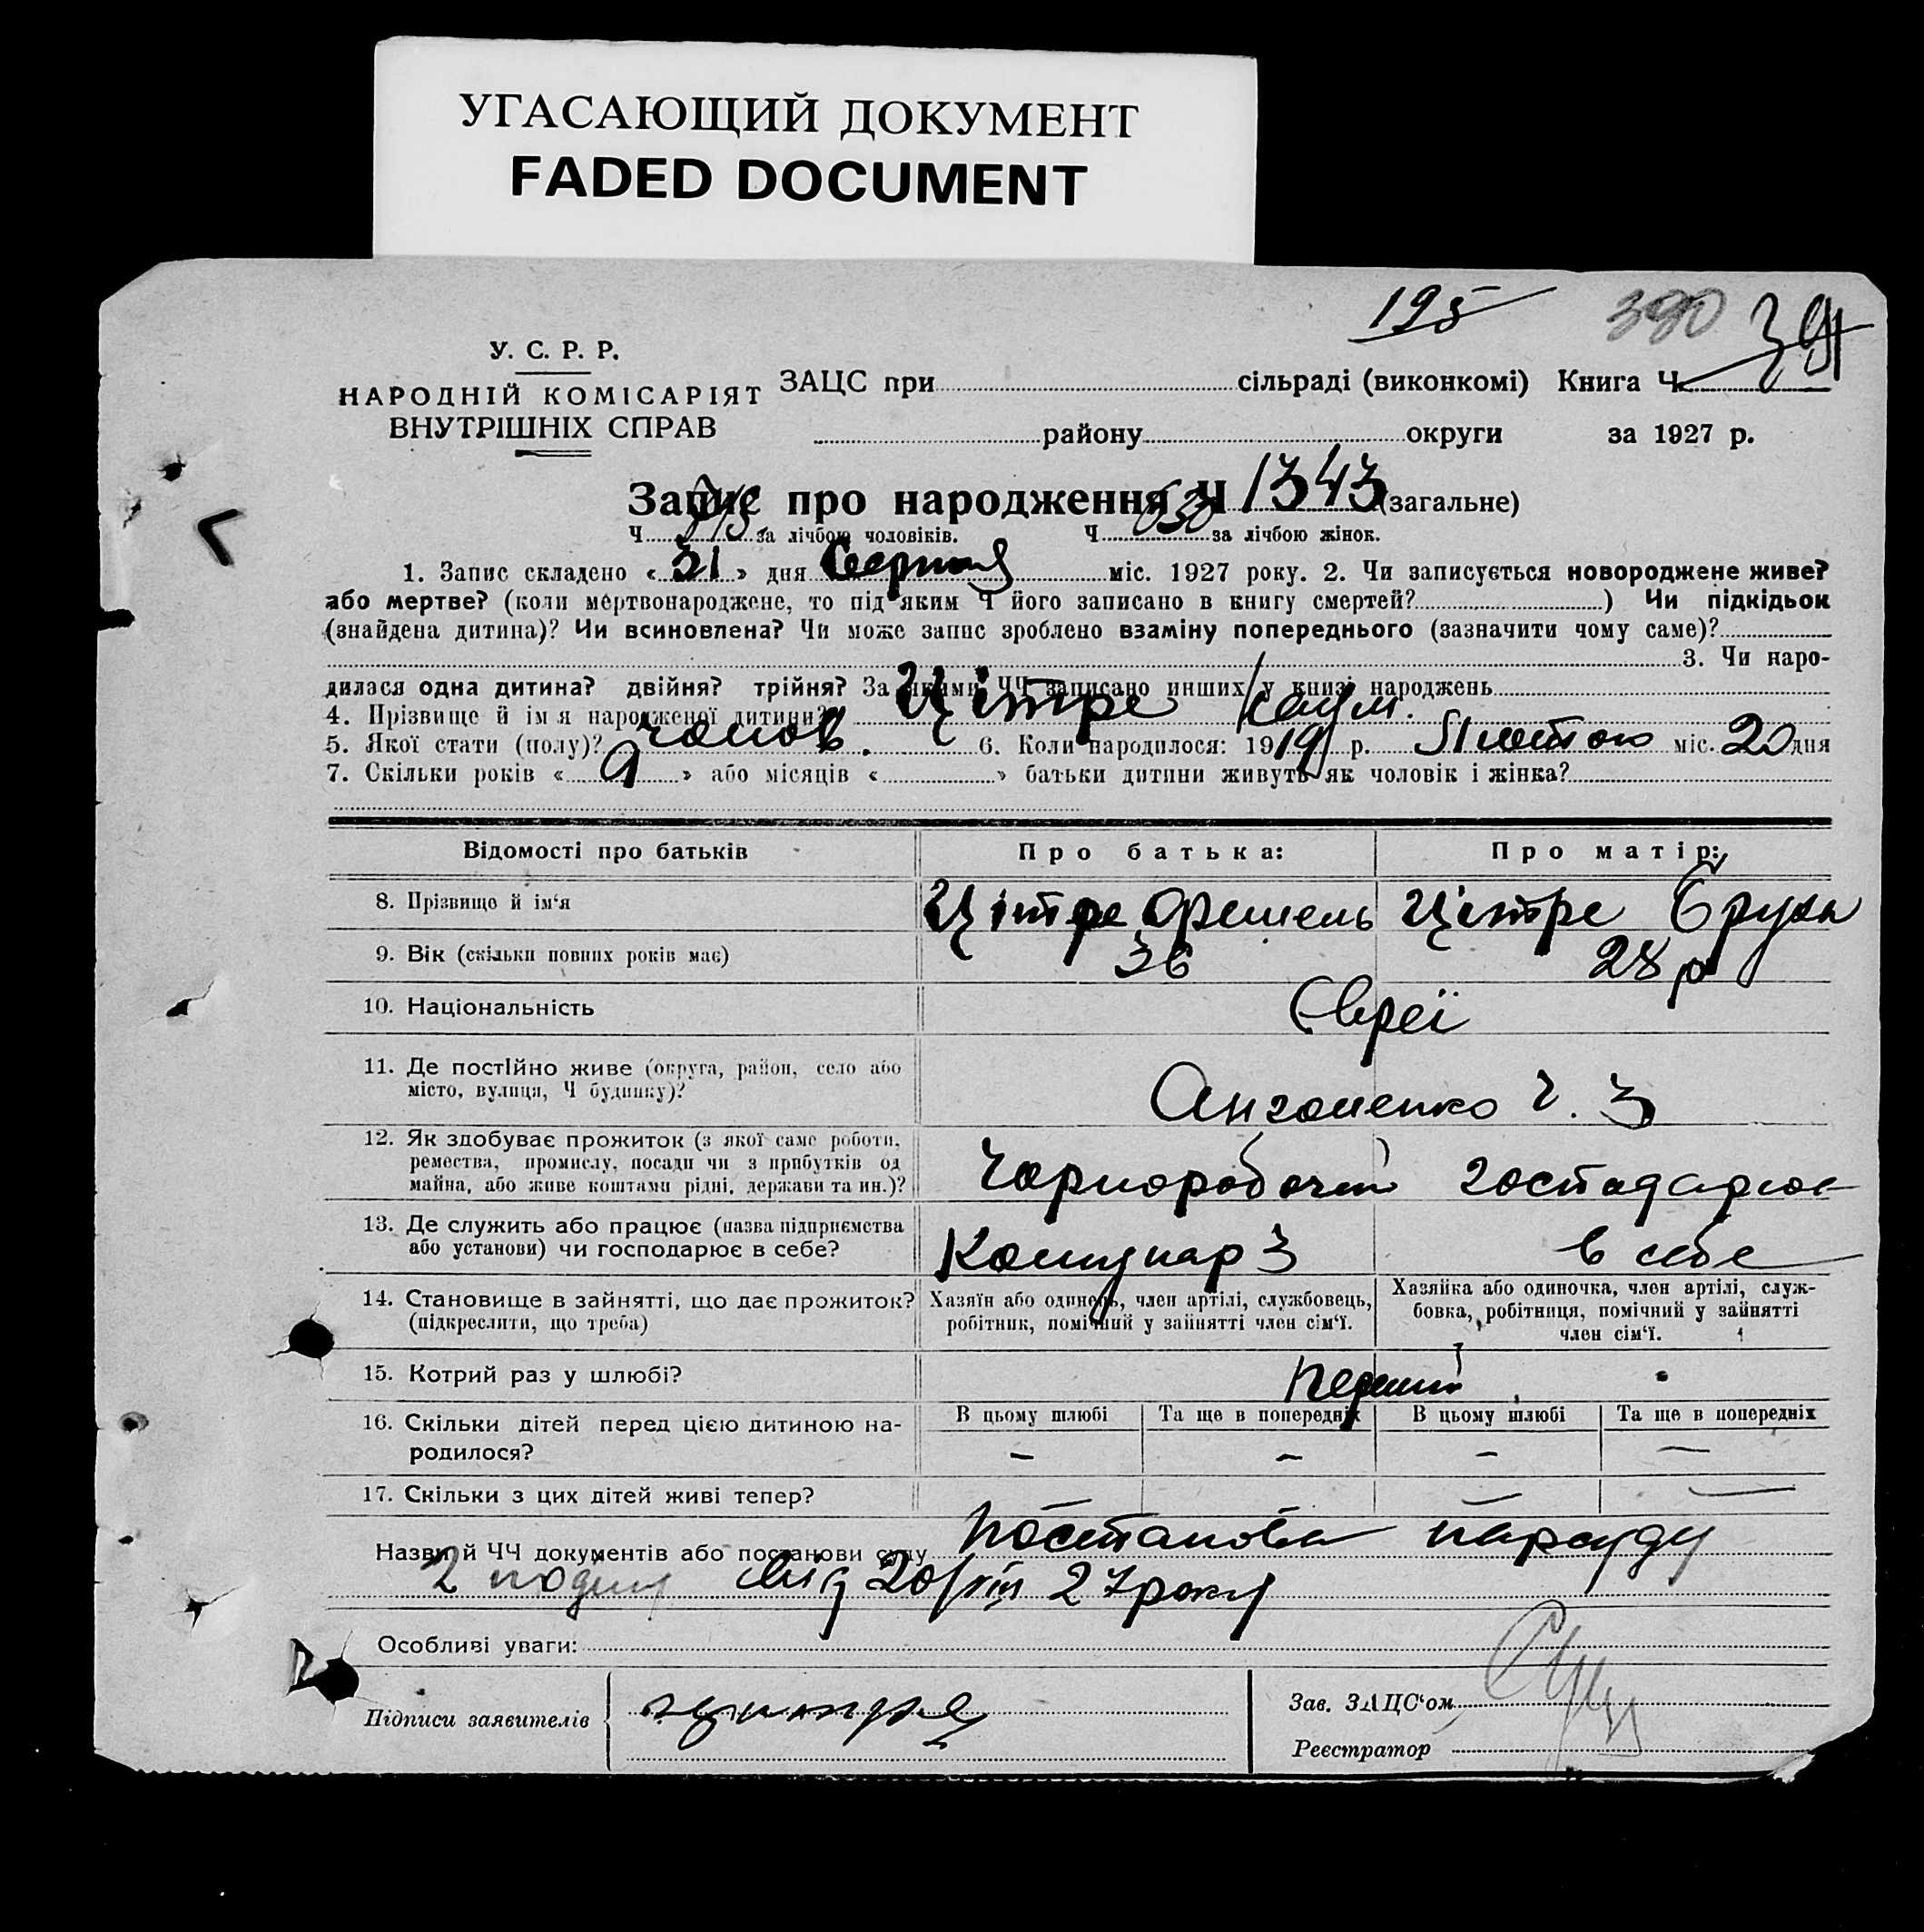 УГАСАЮЩИЙ ДОКУМЕНТ
FADED DOCUMENT
195 390 391
У. С. Р. Р.
НАРОДНІЙ КОМІСАРІЯТ
ВНУТРІШНІХ СПРАВ
ЗАЦС при сільраді (виконкомі) Книга Ч.
району округи за 1927 р.
Запис про народження Ч 1343 (загальне)
Ч 713 за лічбою чоловіків. Ч 630 за лічбою жінок.
1. Запис складено « 31 » дня Серпня міс. 1927 року. 2. Чи записується новороджене живе?
або мертве? (коли мертвонароджене, то під яким Ч його записано в книгу смертей? ) Чи підкідьок
(знайдена дитина)? Чи всиновлена? Чи може запис зроблено взаміну попереднього (зазначити чому саме)?
3. Чи наро-
дилася одна дитина? двійня? трійня? За якими ЧЧ записано инших у книзі народжень
4. Прізвище й ім'я народженої дитини? Цітре
5. Якої стати (полу)? чолов. 6. Коли народилося: 1919 р. Лютого міс. 20 дня
7. Скільки років « 9 » або місяців « » батьки дитини живуть як чоловік і жінка?
Відомості про батьків Про батька: Про матір:
8. Прізвище й ім'я Цітре Орешель Цітре Бруха
9. Вік (скільки повних років має) 36 28 р
10. Національність Євреї
11. Де постійно живе (округа, район, село або
місто, вулиця, Ч будинку)? Ч. 3
12. Як здобуває прожиток (з якої саме роботи,
ремества, промислу, посади чи з прибутків од
майна, або живе коштами рідні, держави та ин.)? Чорноробочий господарює
13. Де служить або працює (назва підприємства
або установи) чи господарює в себе? Комунар 3 в себе
14. Становище в зайнятті, що дає прожиток?
(підкреслити, що треба)
Хазяїн або одинець, член артілі, службовець,
робітник, помічний у зайнятті член сім'ї.
Хазяйка або одиночка, член артілі, служ-
бовка, робітниця, помічний у зайнятті
член сім'ї.
15. Котрий раз у шлюбі? перший
16. Скільки дітей перед цією дитиною на-
родилося?
В цьому шлюбі Та ще в попередніх В цьому шлюбі Та ще в попередніх
— — — —
17. Скільки з цих дітей живі тепер? — —
Назви й ЧЧ документів або постанови суду постанова нарсуду
2 від 20/VIII 27 року
Особливі уваги:
Підписи заявителів
Зав. ЗАЦС'ом
Реєстратор